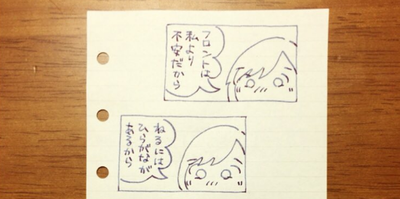 フロントは
私より
不安だから
ねるには
ひらがなが
あるから